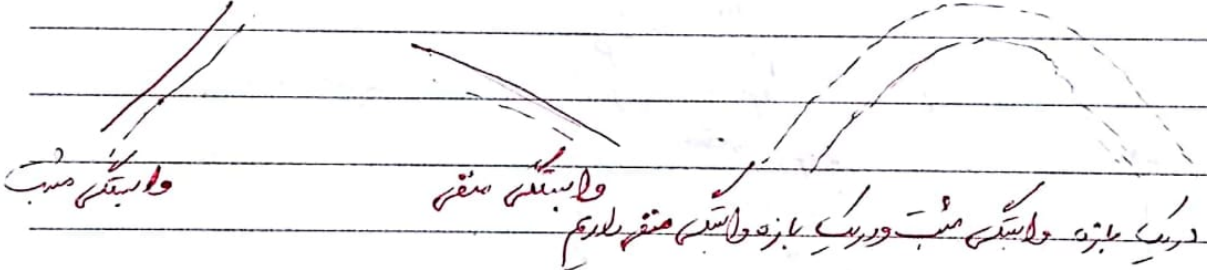 وابستگی مثبت
وابستگی منفی
در یک بازه وابستگی مثبت و در یک بازه وابستگی منفی داریم